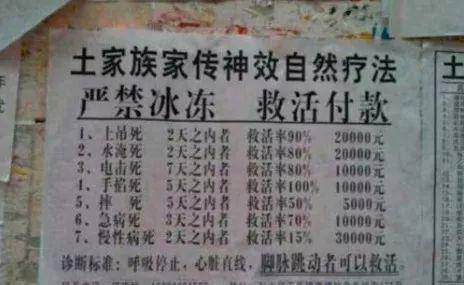 土家族家传神效自然疗法
严禁冰冻 救活付款
1、上吊死 2天之内者 救活率90% 20000元
2、水淹死 2天之内者 救活率80% 20000元
3、电击死 7天之内者 救活率80% 10000元
4、手掐死 5天之内者 救活率100% 10000元
5、摔 死 5天之内者 救活率50% 5000元
6、急病死 3天之内者 救活率70% 10000元
7、慢性病死 2天之内者 救活率15% 30000元
诊断标准：呼吸停止，心脏直线，脚脉跳动者可以救活。
土